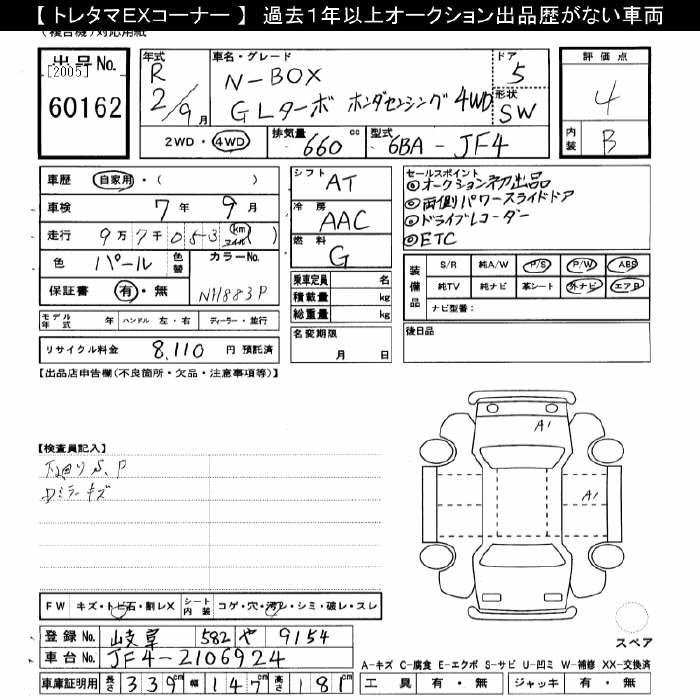 【 トレタマEXコーナー 】 過去1年以上オークション出品歴がない車両
(複合機)対応用紙
出品No.
[2005]
60162
年式
R
2/9月
車名・グレード
N-BOX
GLターボ ホンダセンシング 4WD
ドア
5
形状
SW
2WD・4WD
排気量 660 cc
型式 6BA - JF4
評価点
4
内装 B
車歴 自家用・( )
車検 7年 9月
走行 9万7千053 (km マイル)( )
色 パール 色替 カラーNo.
保証書 有・無 NH883P
モデル年式 年 ハンドル 左・右 ディーラー・並行
リサイクル料金 8,110 円 預託済
シフト AT
冷房 AAC
燃料 G
乗車定員 名
積載量 kg
総重量 kg
名変期限
月 日
セールスポイント
◎オークション初出品
◎両側パワースライドドア
◎ドライブレコーダー
◎ETC
装備品
S/R 純A/W P/S P/W ABS
純TV 純ナビ 革シート 外ナビ エアB
ナビ型番:
後日品
【出品店申告欄(不良箇所・欠品・注意事項等)】
【検査員記入】
下回りS、P
Dミラーキズ
A1
A1
FW キズ・トビ石・割レX シート内装 コゲ・穴・汚レ・シミ・破レ・スレ
登録No. 岐阜 582 や 9154
車台No. JF4-2106924
車庫証明用 長さ 339cm 幅 147cm 高さ 181cm
スペア
A-キズ C-腐食 E-エクボ S-サビ U-凹ミ W-補修 XX-交換済
工具 有・無 ジャッキ 有・無